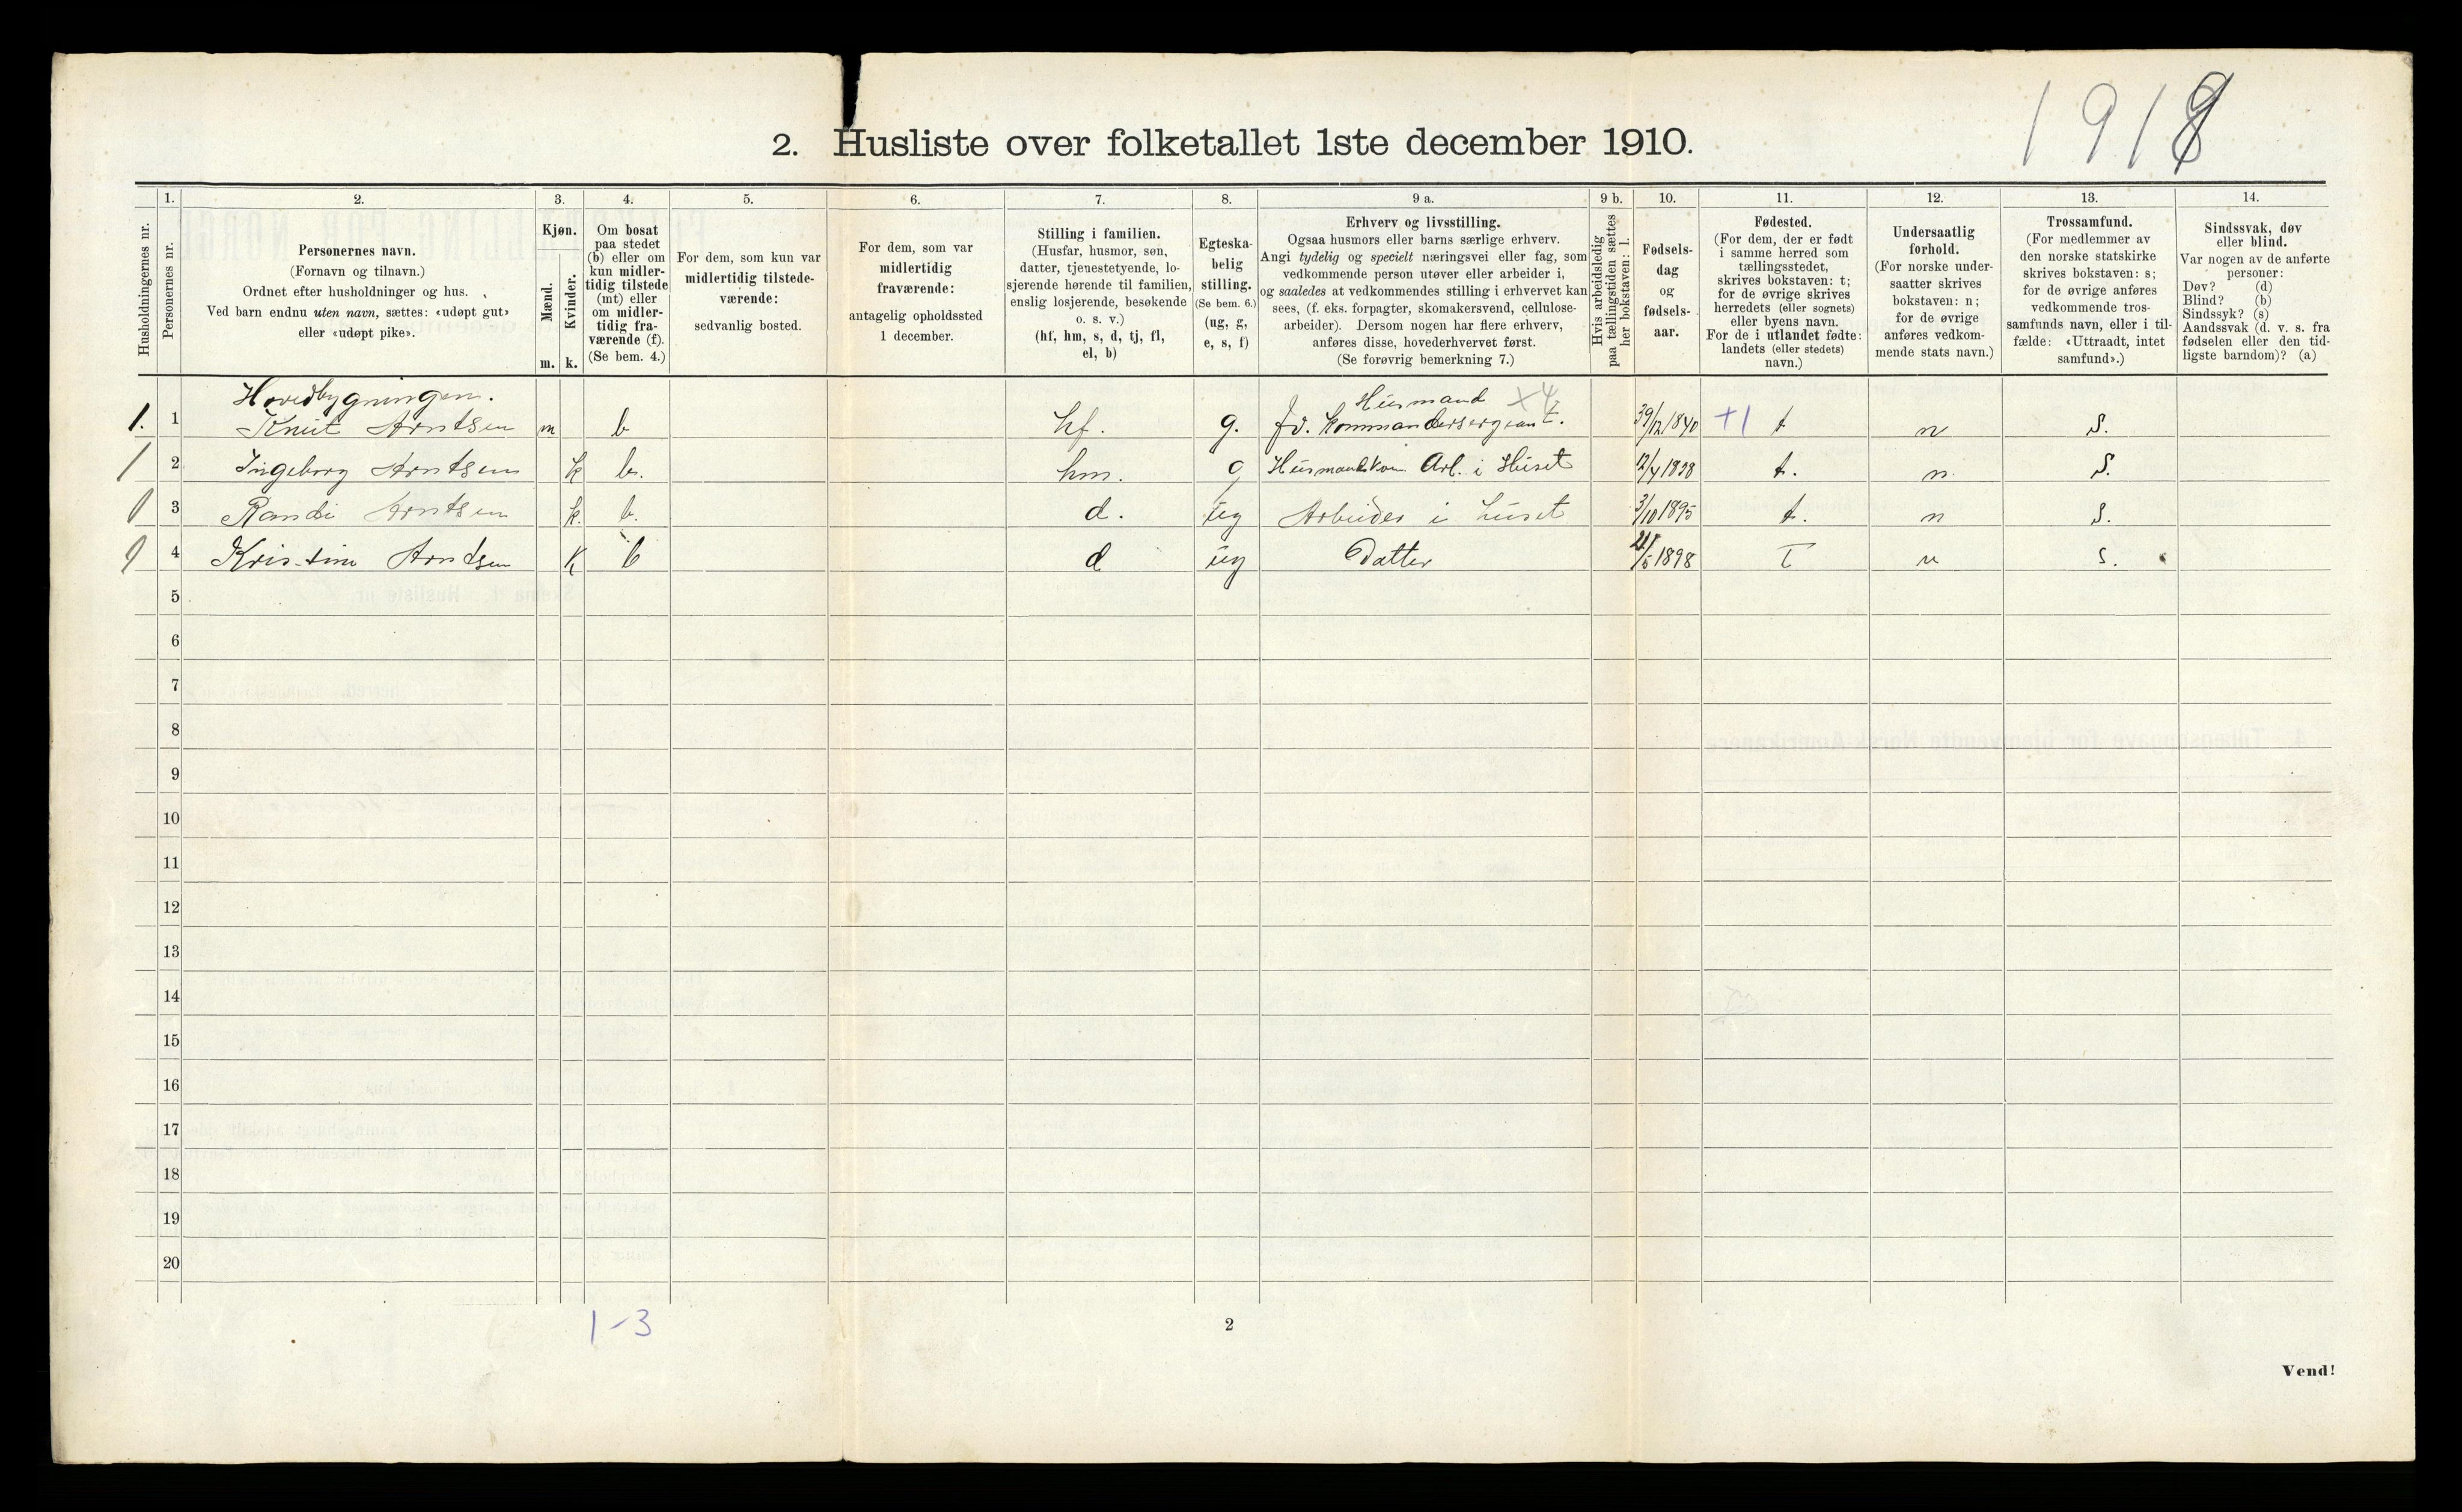 1918
2. Husliste over folketallet 1ste december 1910.
Husholdningernes nr.
1.
Personernes nr.
2.
Personernes navn.
(Fornavn og tilnavn.)
Ordnet efter husholdninger og hus.
Ved barn endnu uten navn, sættes: «udøpt gut»
eller «udøpt pike».
3.
Kjøn.
Mænd.
m.
Kvinder.
k.
4.
Om bosat
paa stedet
(b) eller om
kun midler-
tidig tilstede
(mt) eller
om midler-
tidig fra-
værende (f).
(Se bem. 4.)
5.
For dem, som kun var
midlertidig tilstede-
værende:
sedvanlig bosted.
6.
For dem, som var
midlertidig
fraværende:
antagelig opholdssted
1 december.
7.
Stilling i familien.
(Husfar, husmor, søn,
datter, tjenestetyende, lo-
sjerende hørende til familien,
enslig losjerende, besøkende
o. s. v.)
(hf, hm, s, d, tj, fl,
el, b)
8.
Egteska-
belig
stilling.
(Se bem. 6.)
(ug, g,
e, s, f)
9 a.
Erhverv og livsstilling.
Ogsaa husmors eller barns særlige erhverv.
Angi tydelig og specielt næringsvei eller fag, som
vedkommende person utøver eller arbeider i,
og saaledes at vedkommendes stilling i erhvervet kan
sees, (f. eks. forpagter, skomakersvend, cellulose-
arbeider). Dersom nogen har flere erhverv,
anføres disse, hovederhvervet først.
(Se forøvrig bemerkning 7.)
9 b.
Hvis arbeidsledig
paa tællingstiden sættes
her bokstaven: l.
10.
Fødsels-
dag
og
fødsels-
aar.
11.
Fødested.
(For dem, der er født
i samme herred som
tællingsstedet,
skrives bokstaven: t;
for de øvrige skrives
herredets (eller sognets)
eller byens navn.
For de i utlandet fødte:
landets (eller stedets)
navn.)
12.
Undersaatlig
forhold.
(For norske under-
saatter skrives
bokstaven: n;
for de øvrige
anføres vedkom-
mende stats navn.)
13.
Trossamfund.
(For medlemmer av
den norske statskirke
skrives bokstaven: s;
for de øvrige anføres
vedkommende tros-
samfunds navn, eller i til-
fælde: «Uttraadt, intet
samfund».)
14.
Sindssvak, døv
eller blind.
Var nogen av de anførte
personer:
Døv? (d)
Blind? (b)
Sindssyk? (s)
Aandssvak (d. v. s. fra
fødselen eller den tid-
ligste barndom)? (a)
Hovedbygningen.
Husmand x4
1. 1 Knut Arntsen m b hf. g. fv. Kommandersergeant. /12 1840 +1 t n S.
2 Ingeborg Arntsen k b. hm. g Arb. i Huset t. n. S.
3 Randi Arntsen k. b. d. ug Arbeider i huset 3/10 1895 t. n S.
4 Kristine Arntsen k b d ug Datter /5 1898 T n S.
5
6
7
8
9
10
11
12
13
14
15
16
17
18
19
20
1-3
2
Vend!